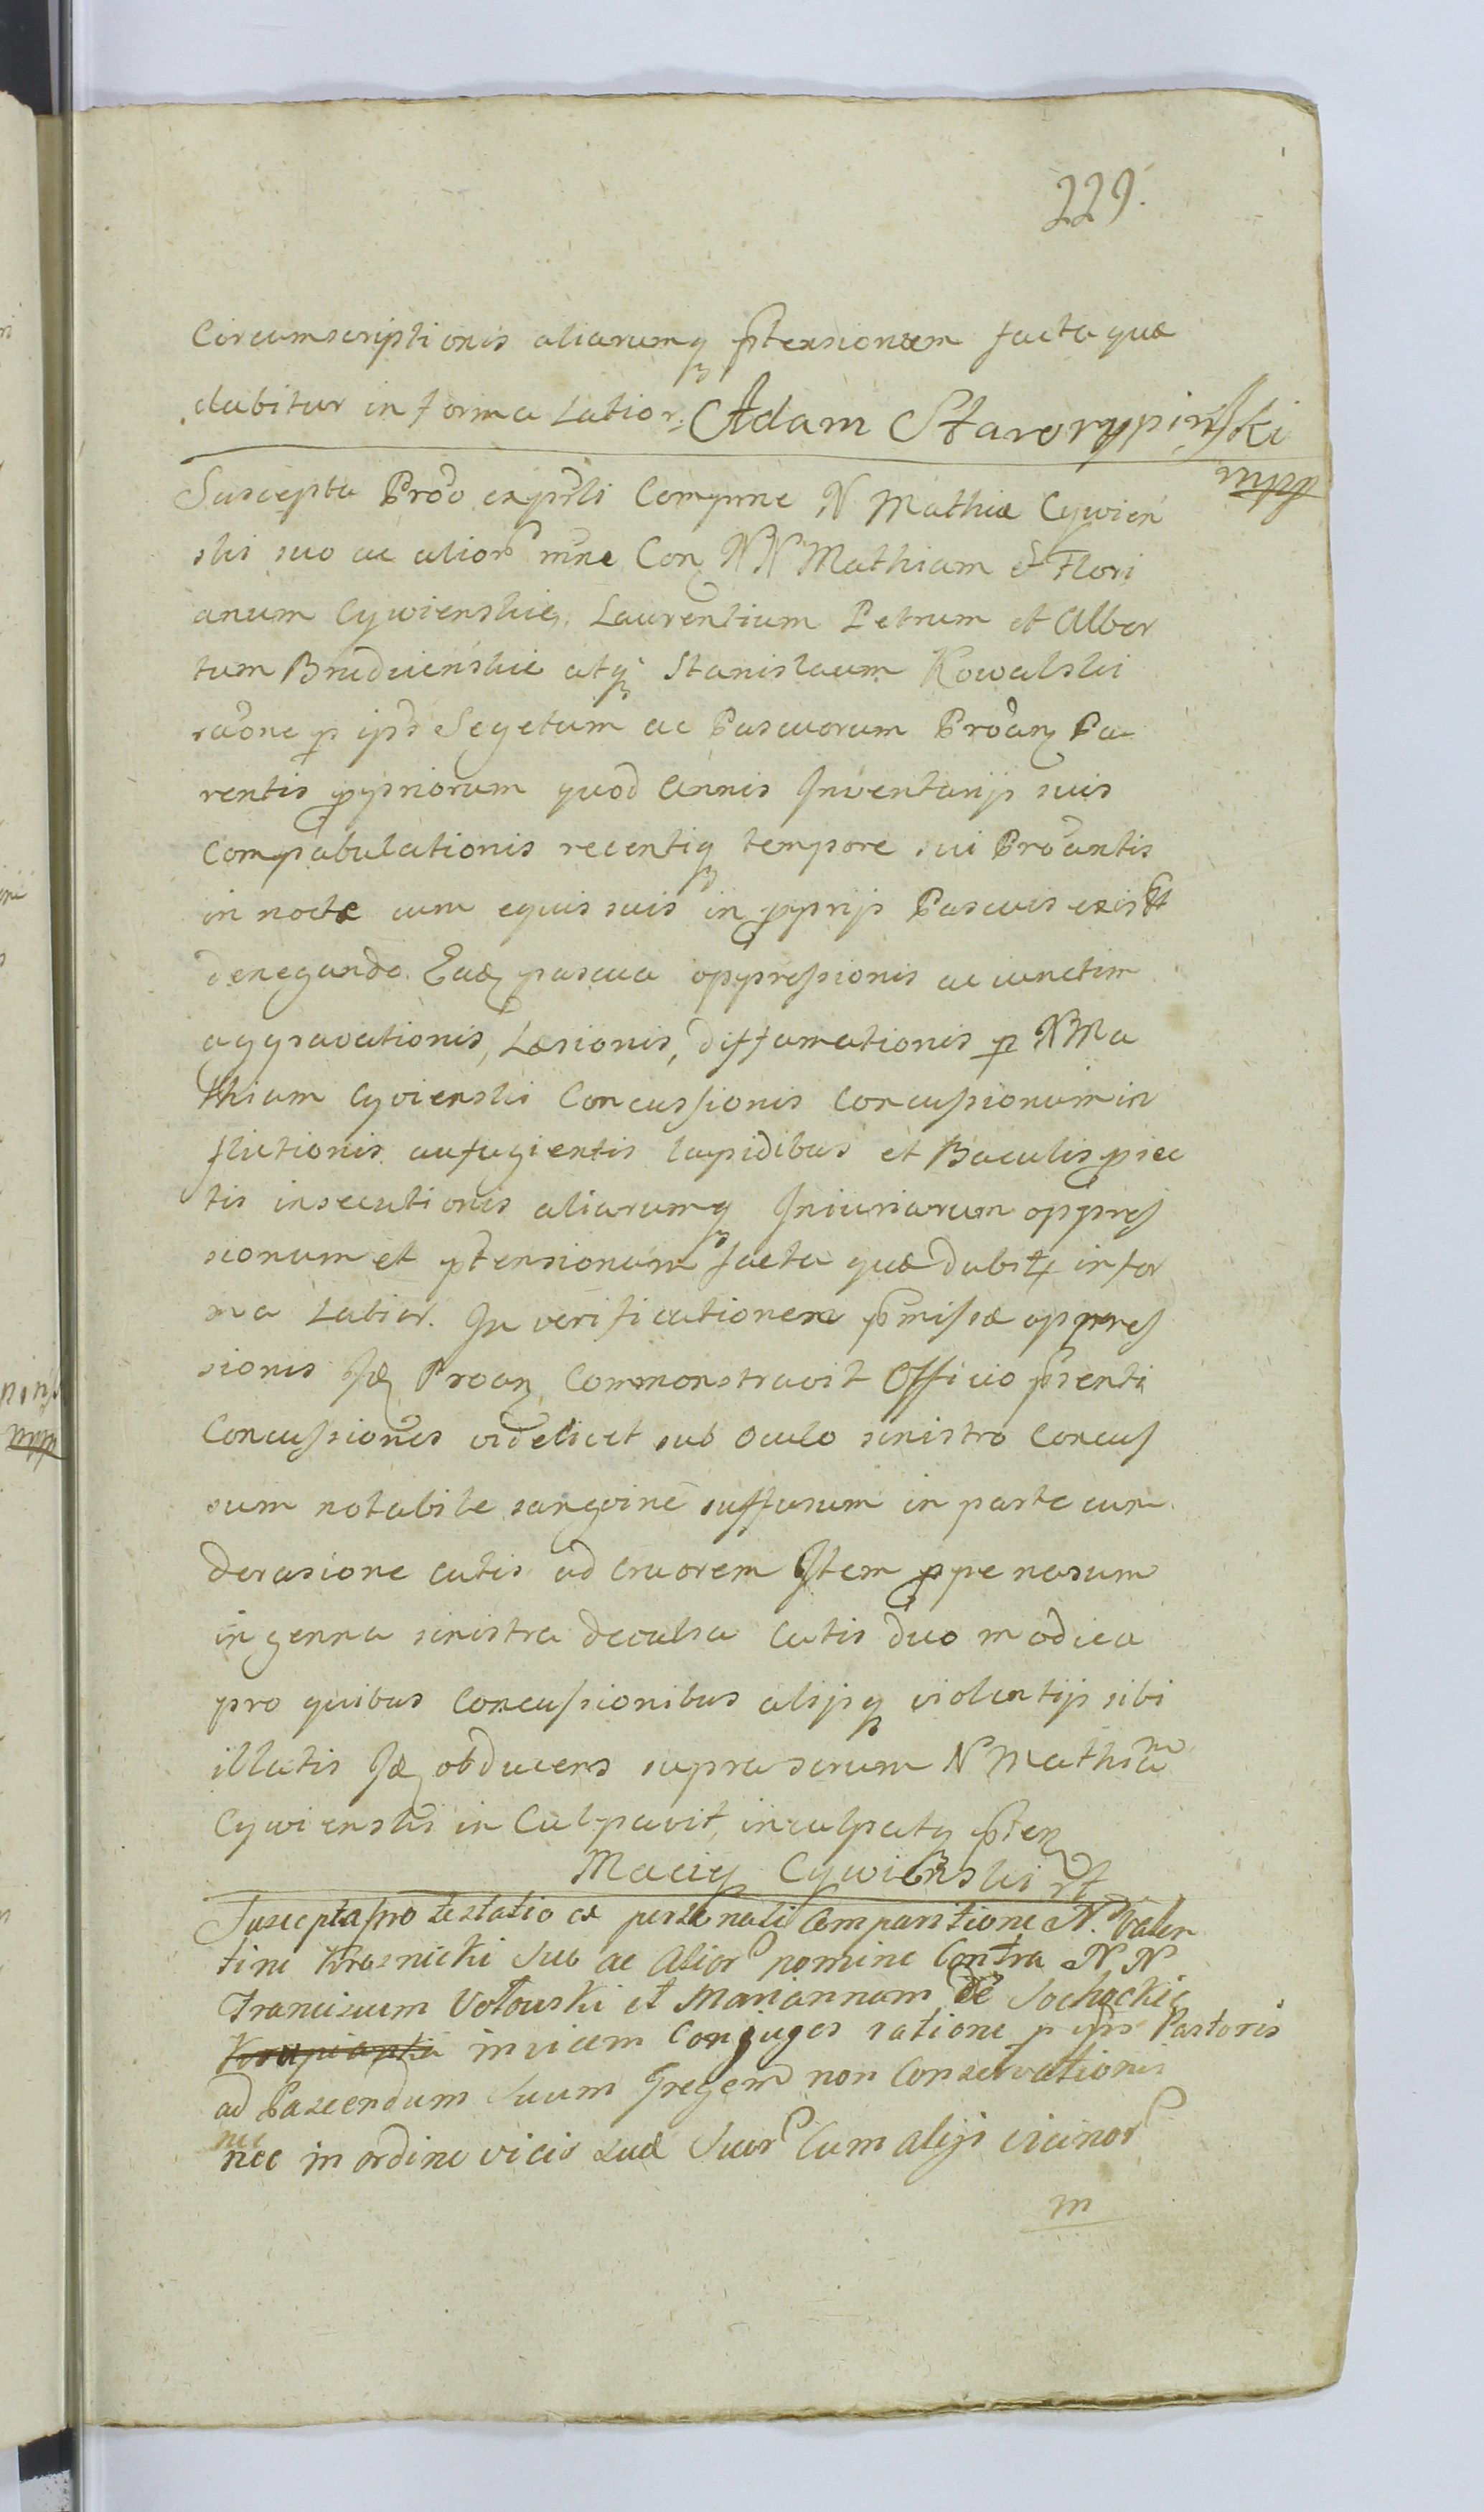 229.
Circumscriptionis aliarumq ptensionum facta quæ
dabitur in forma Latior: Adam Starorypiński
mpp
Suscepta Prōo expsli Compnne N Mathiæ Cywien
ski suo ac alior nne Con NN Mathiam et Flori
anum Cywienskie, Laurentium Petrum et Alber
tum Brudwienskie atq Stanislaum Kowalski
raōne p ips Segetum ac Pascuorum Proan Pa
rentis ppriorum quod Annis Inventarijs suis
Compabulationis recentiq tempore sui Proantis
in nocte cum equis suis in pprijs Pascuis exist
denegando Ead pascua oppressionis ac iunctim
aggravationis, Læsionis, diffamationis p N Ma
thiam Cywienski Concussionis Concussionum in
flictionis aufugientis lapidibus et Baculis piec
tis insecutionis aliarumq Iniuriarum oppres
sionum et ptensionum facta quæ dabit in for
ma Latior. In verificationem pmissæ oppres
sionis Id Proan Commonstravit Officio psenti
Concussiones videlicet sub oculo sinistro Concus
sum notabile sangvine suffusum in parte cum
derasione cutis ad cruorem Item ppe nasum
in genna sinistra devulsa Cutis duo modica
pro quibus Concussionibus alijsq violentijs sibi
illatis Id obducens supra serum N Mathiam
Cywienski in Culpavit, inculpatq pten
Maciy Cywienski
Suscepta protestatio ex personali Comparitione N. Valen
tini Krasnicki Suo ac Alior nomine Contra N N
Franciscum Votowski et Mariannam de Sochackie
invicem Conjuges ratione p ips Pastoris
ad Pascendum Suum Gregem non Conservationis
nec
nec in ordine vicis suæ Suor Cum alijs vicinor
m